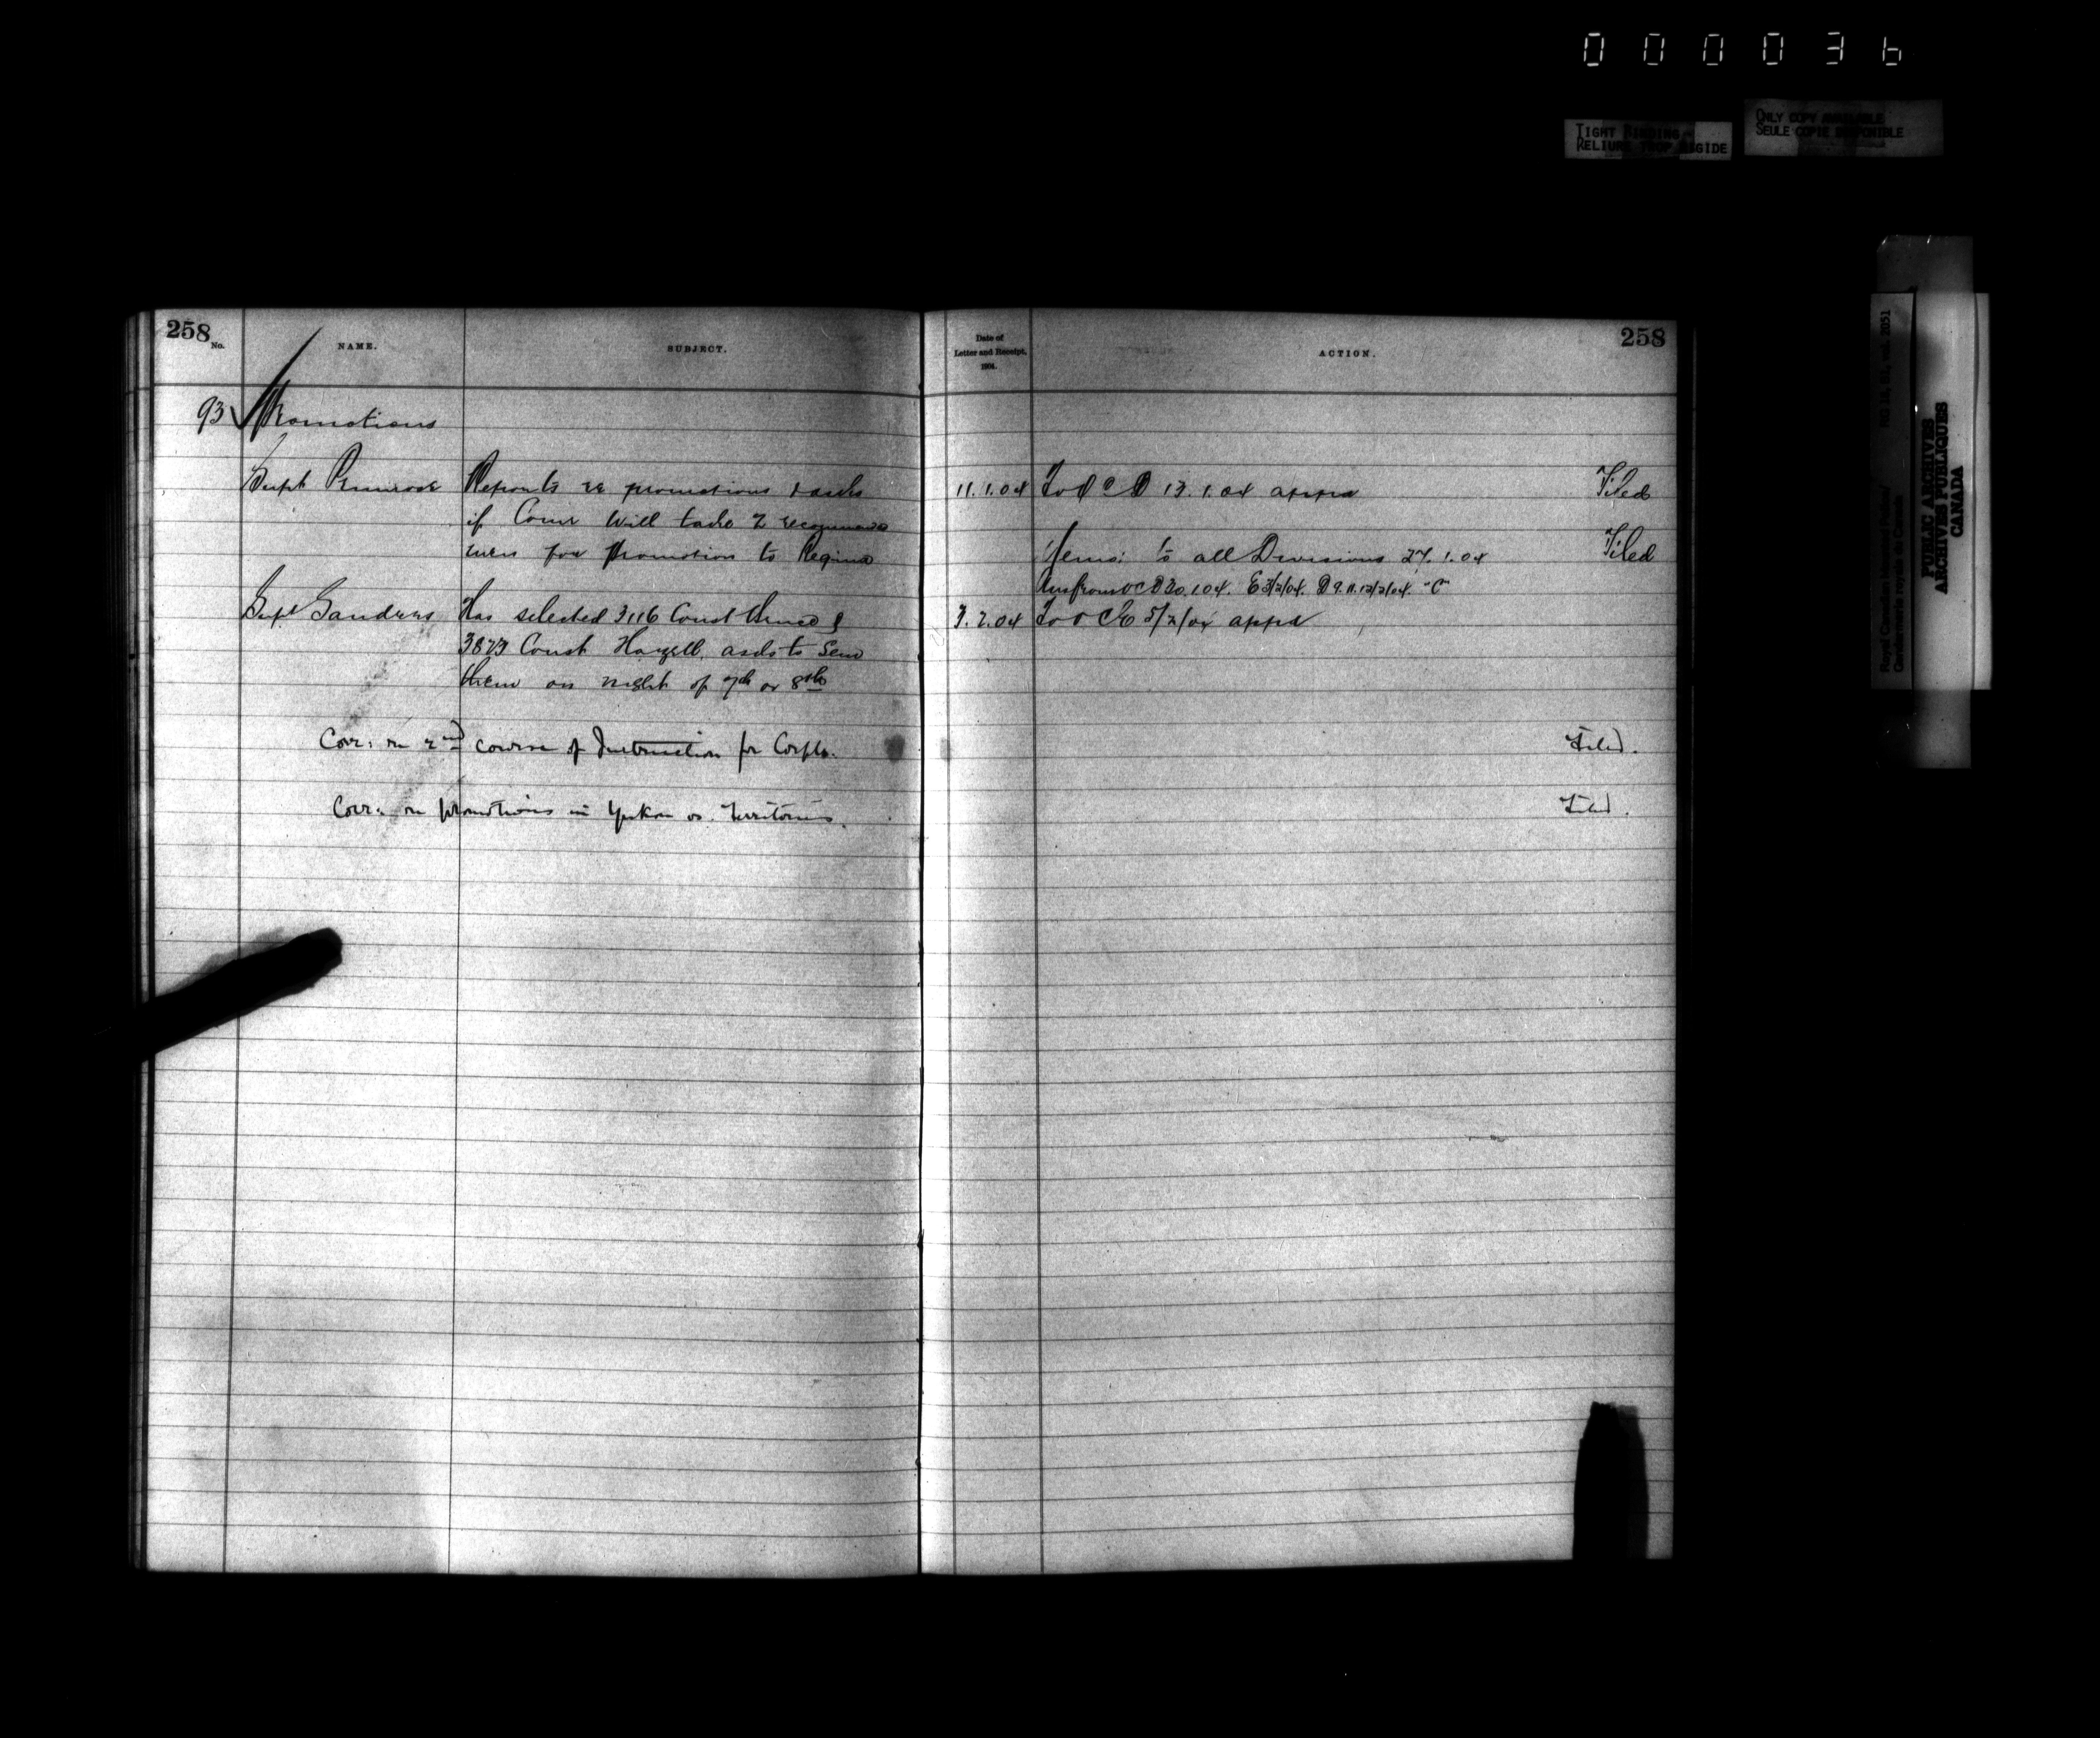 000036
TIGHT BINDING
RELIURE TROP RIGIDE
ONLY COPY AVAILABLE
SEULE COPIE DISPONIBLE
Royal Canadian Mounted Police/
Gendarmerie royale du Canada
RG 18, B1, vol. 2051
PUBLIC ARCHIVES
ARCHIVES PUBLIQUES
CANADA
258
No.
NAME.
SUBJECT.
Date of
Letter and Receipt,
1904.
ACTION.
258
93 Promotions
Supt Primrose Reports re promotions & asks 11.1.04 To O C D 13.1.04 appd Filed
if Comr will take 2 recommended
men for promotion to Regina Memo: to all Divisions 27.1.04 Filed
Ans from O C D 30.1.04. E 3/2/04. D 9.11.12/2/04. "C"
Supt Sanders Has selected 3116 Const & 3.2.04 To O C E 5/2/04 appd
3873 Const Hazell, asks to send
them on night of 7th or 8th
Corr: re 2nd course of Instruction for Corpls. Filed.
Corr: re promotions in Yukon vs. Territories. Filed.